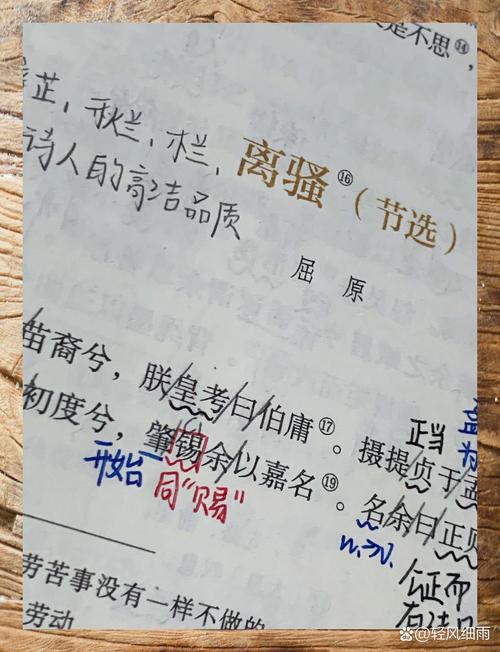 是不思⑭,
芷,秋兰,木兰,
诗人的高洁品质
离骚⑯(节选)
屈 原
苗裔兮,朕皇考曰伯庸⑰。摄提贞于孟
正当
初度兮,肇锡余以嘉名⑲。名余曰正则
开始
同“赐”
n.→v.
公正而
有法
劳苦事没有一样不做的
劳动
轻风细雨